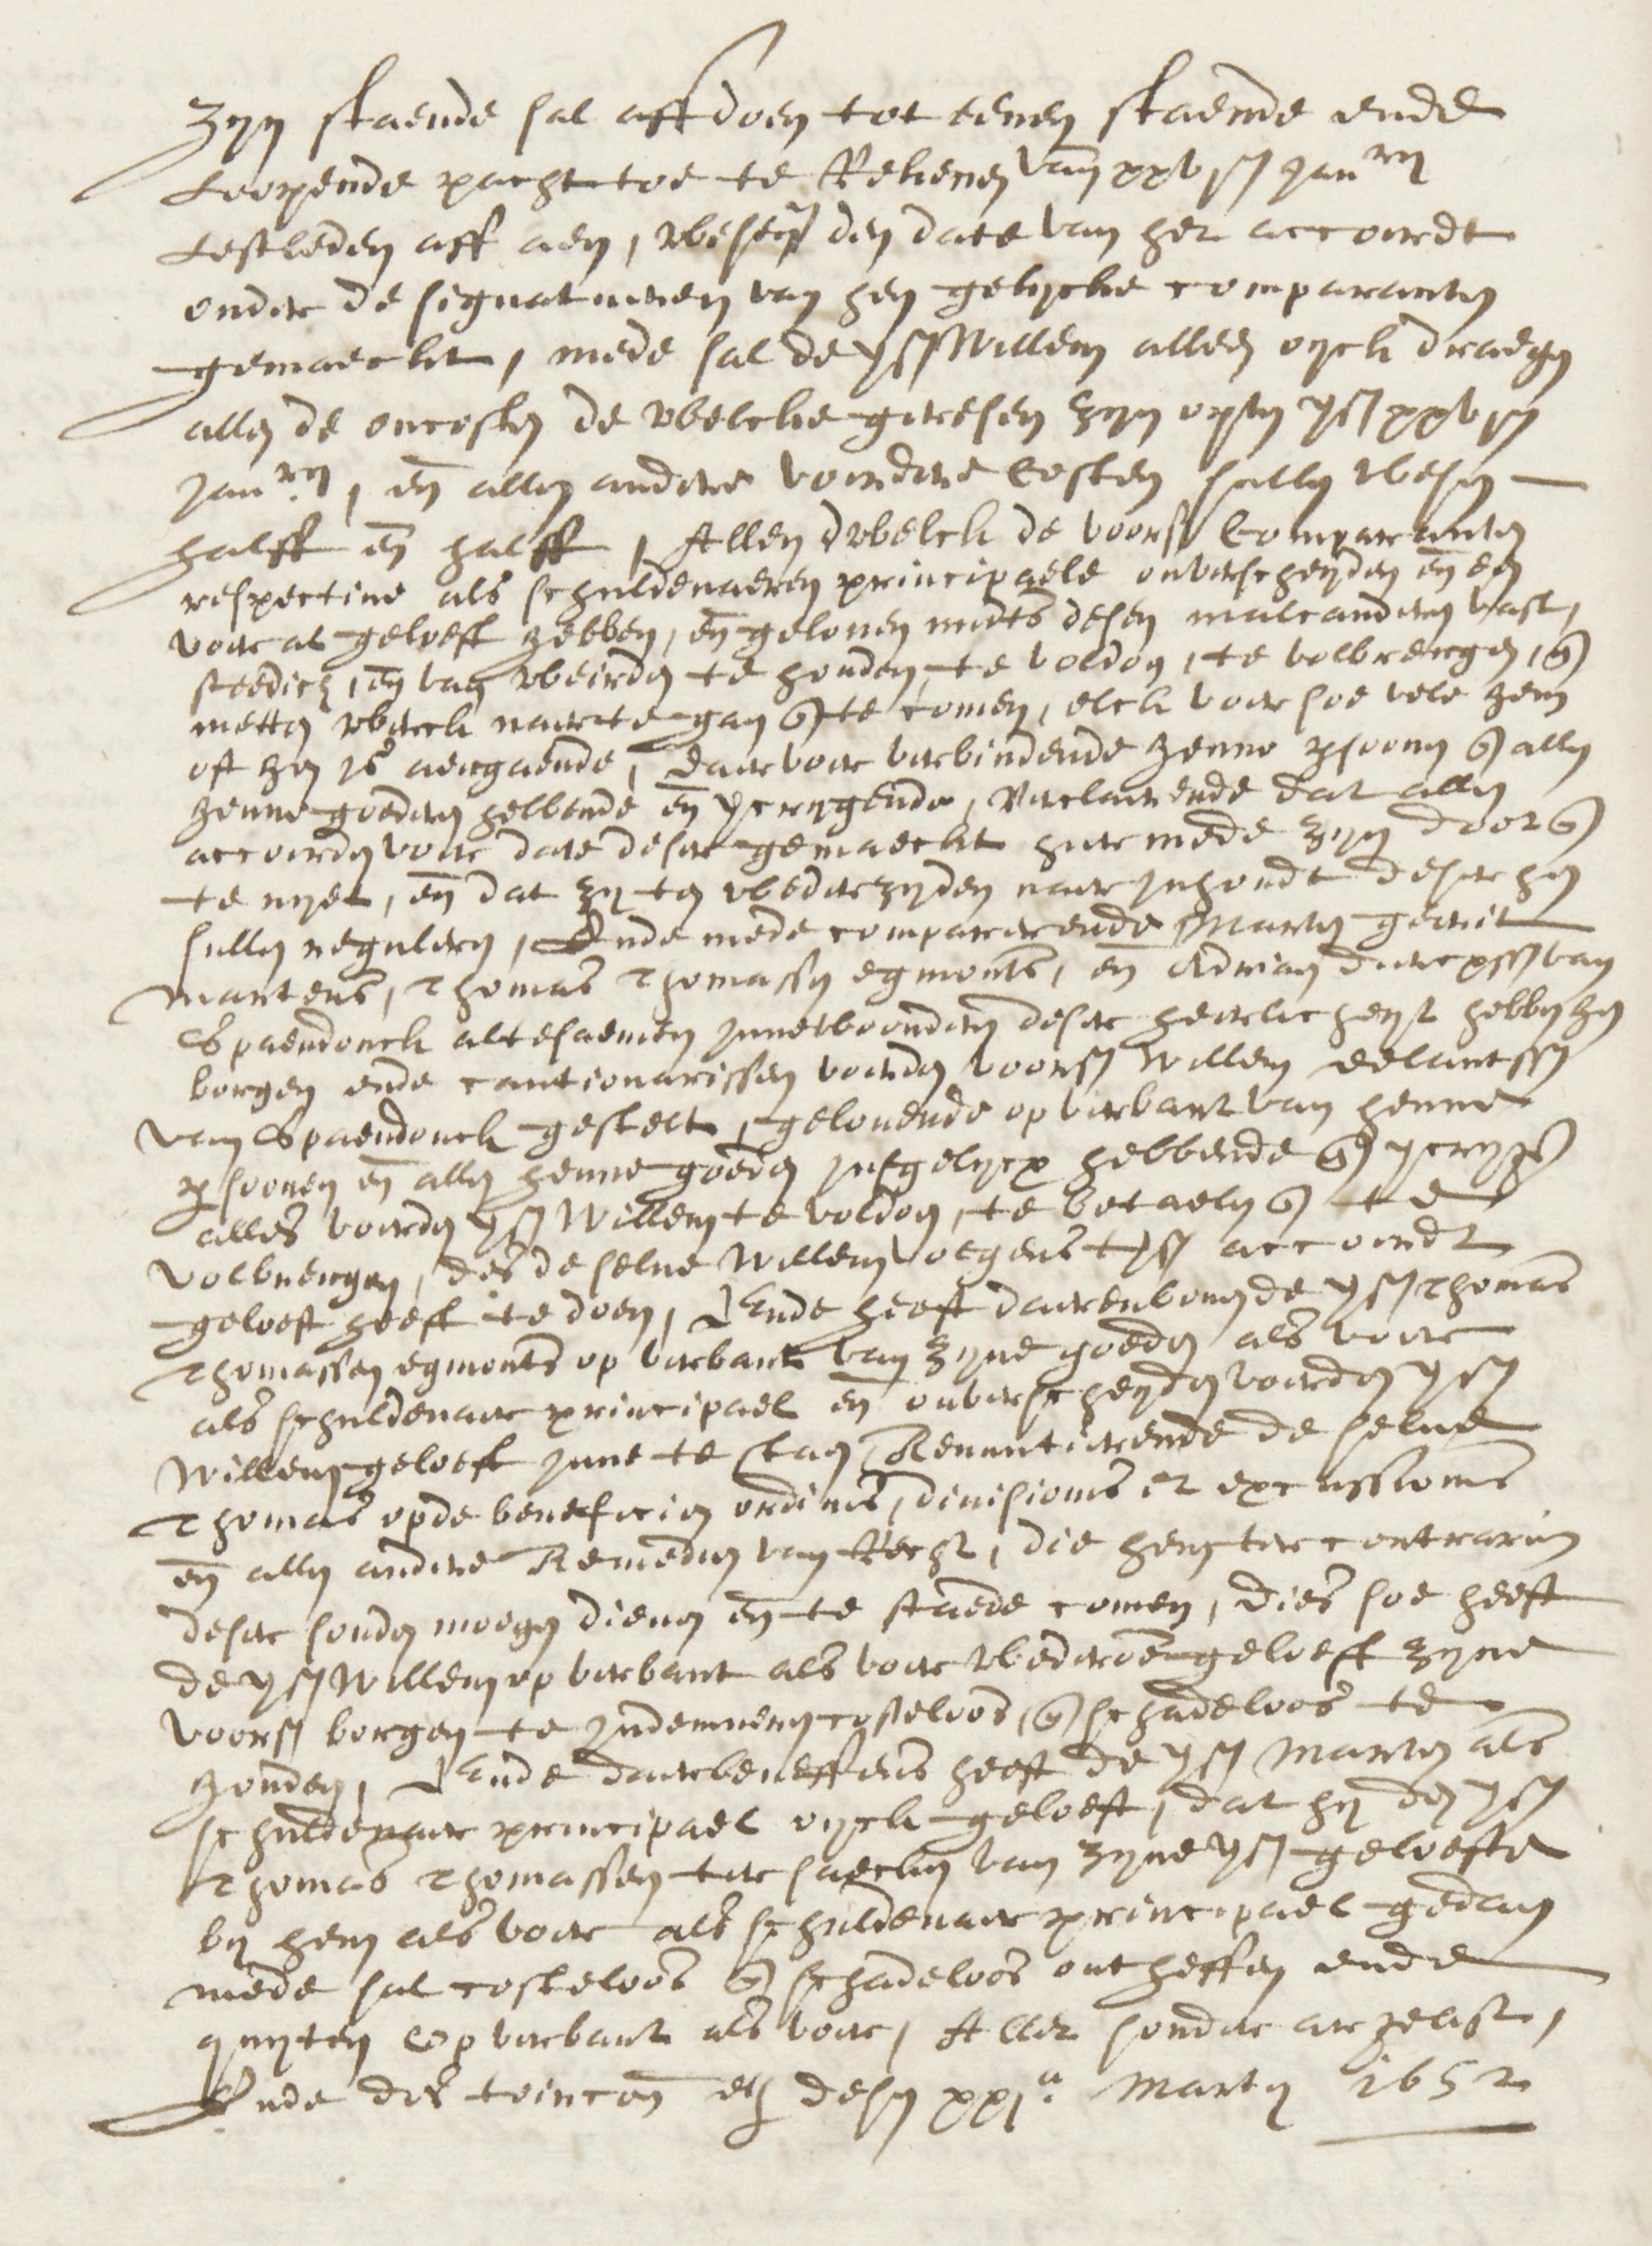 zijn staende sal affdoen tot eenen staende ende
loopende pacht toe te Rekenen van xxv sten Janrij
lestleden aff aen, wesende den date van het accoirdt
onder de signatueren van hen gelijcke comparanten
gemaeckt, mede sal de vs. Willem alleen oijck draegen
allen de oncosten de welcke geresen zijn opten vs. xxv sten
Janrij, en allen andere voirdere costen sullen wesen
halff en halff, Allen twelck de voors. Comparanten
respective als schuldenaeren principaele onverscheyden en een
voir al geloeft hebben, en geloven midts desen malcanderen vast,
stedich, en van weirden te houden, te voldoen, te volbrengen, en
metten werck naer te gaen en te comen, elck voir soe vele hem
oft hen is aengaende, Daer voir verbindende henne persoonen en allen
henne goederen hebbende en vercrijgende, Verclaerende dat allen
accoirden voir date deser gemaeckt hier mede zijn doot en
te nyet, en dat zij ten wederzijden naer inhoudt deser hen
sullen reguleren, Ende mede comparerende Marten Gerit
Martens, Thomas Thomassen Egmonts, en Adriaen Diercxssen van
Spaendonck altesaemen innewoonderen deser heerlicheyt hebben hen
borgen ende cautionarissen voirden voors. Willem Eelantssen
van Spaendonck gestelt, gelovende op verbant van henne
persoonen en allen henne goeden insgelijcx hebbende en vercrijgende
alles voirden vs. Willem te voldoen, te betaelen en te
volbrengen, des de selve Willem volgens tvs. accoirdt
geloeft heeft te doen, Ende heeft daerenboven de vs. Thomas
Thomassen Egmonts op verbant van zijne goeden als voir
als schuldenaer principael en onverscheyden voirden vs.
Willem geloeft inne te staen, Renuntierende de selve
Thomas opde beneficien ordinis, divisionis et excussionis
en allen andere Remedien van Recht, die hem ter contrarien
deser souden moegen dienen en te staede comen, Dies soe heeft
de vs. Willem op verbant als voir wederom geloeft zijne
voors. borgen te indemneren costeloos, en schadeloos te
houden, Ende daerbeneffens heeft de vs. Marten als
schuldenaer principael oijck geloeft, dat hij den vs.
Thomas Thomassen ter saecken van zijne vs. geloefte
bij hem als voir als schuldenaer principael gedaen
mede sal costeloos en schadeloos ontheffen ende
quijten op verbant als voir, Allet sonder argelist,
Ende des toirconden etc. desen xxj.a Martij 1652